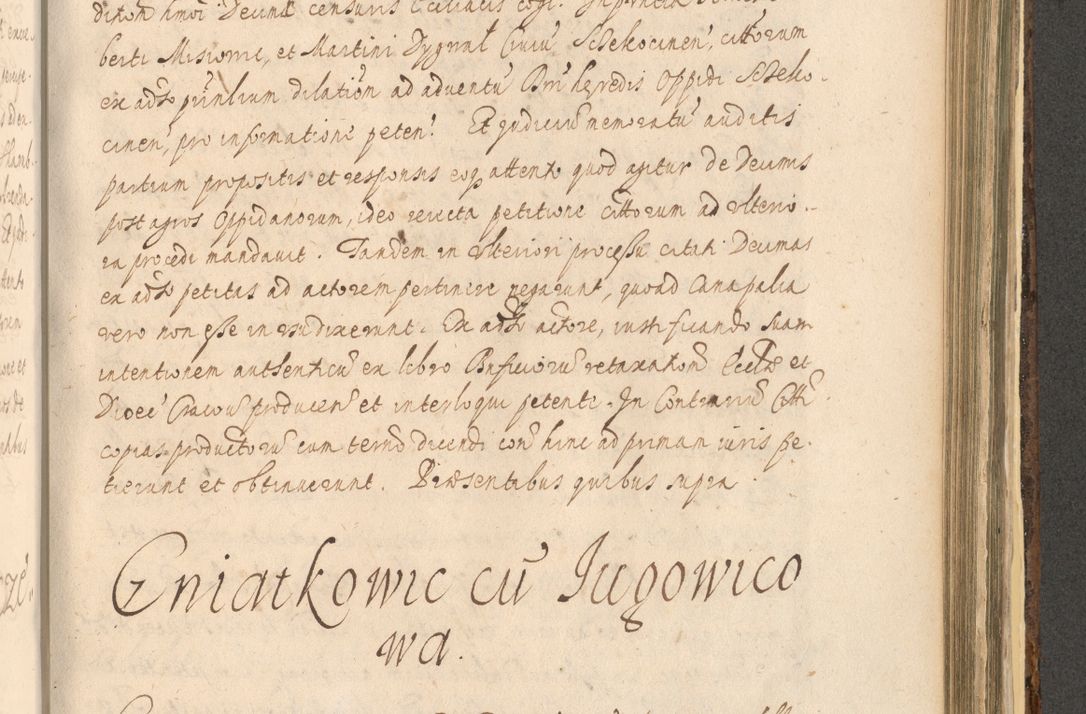 berti Misiorne, et Martini Dygnał Civiu᷃ Sczekocinen᷃, citt̃orum
ex adso pn̄lium dilation᷃ ad adventu᷃ Dn̄i hęredis Oppidi Szeko-
cinen᷃, pro informatione peten᷃! Et judiciu᷃ memoratu᷃ auditis
partium propositis et responsis eoq attento quod agitur de Decimis
post agros Oppidanorum, ideo reiecta petitione citt̃orum ad vlterio-
ra procedi mandavit. Tandem in vlteriori processu citati Decimas
ex adso petitas ad actorem pertinere negarunt, quoad Canapalia
vero non esse in usu dixerunt. Ex adso actore, iustificando suam
intentionem authenticu᷃ ex libro Bnficioru᷃ retaxation᷃ Eccl̃æ et
Dioec᷃ Cracov᷃ producen᷃ et interloqui petenti. In Contrariu᷃ Citti
copias productoru᷃ cum termo dicendi con᷃ hinc ad primam iuris pe-
tierunt et obtinuerunt. Præsentibus quibus supra
Gniatkowic cu᷃ Jugowico
wa.